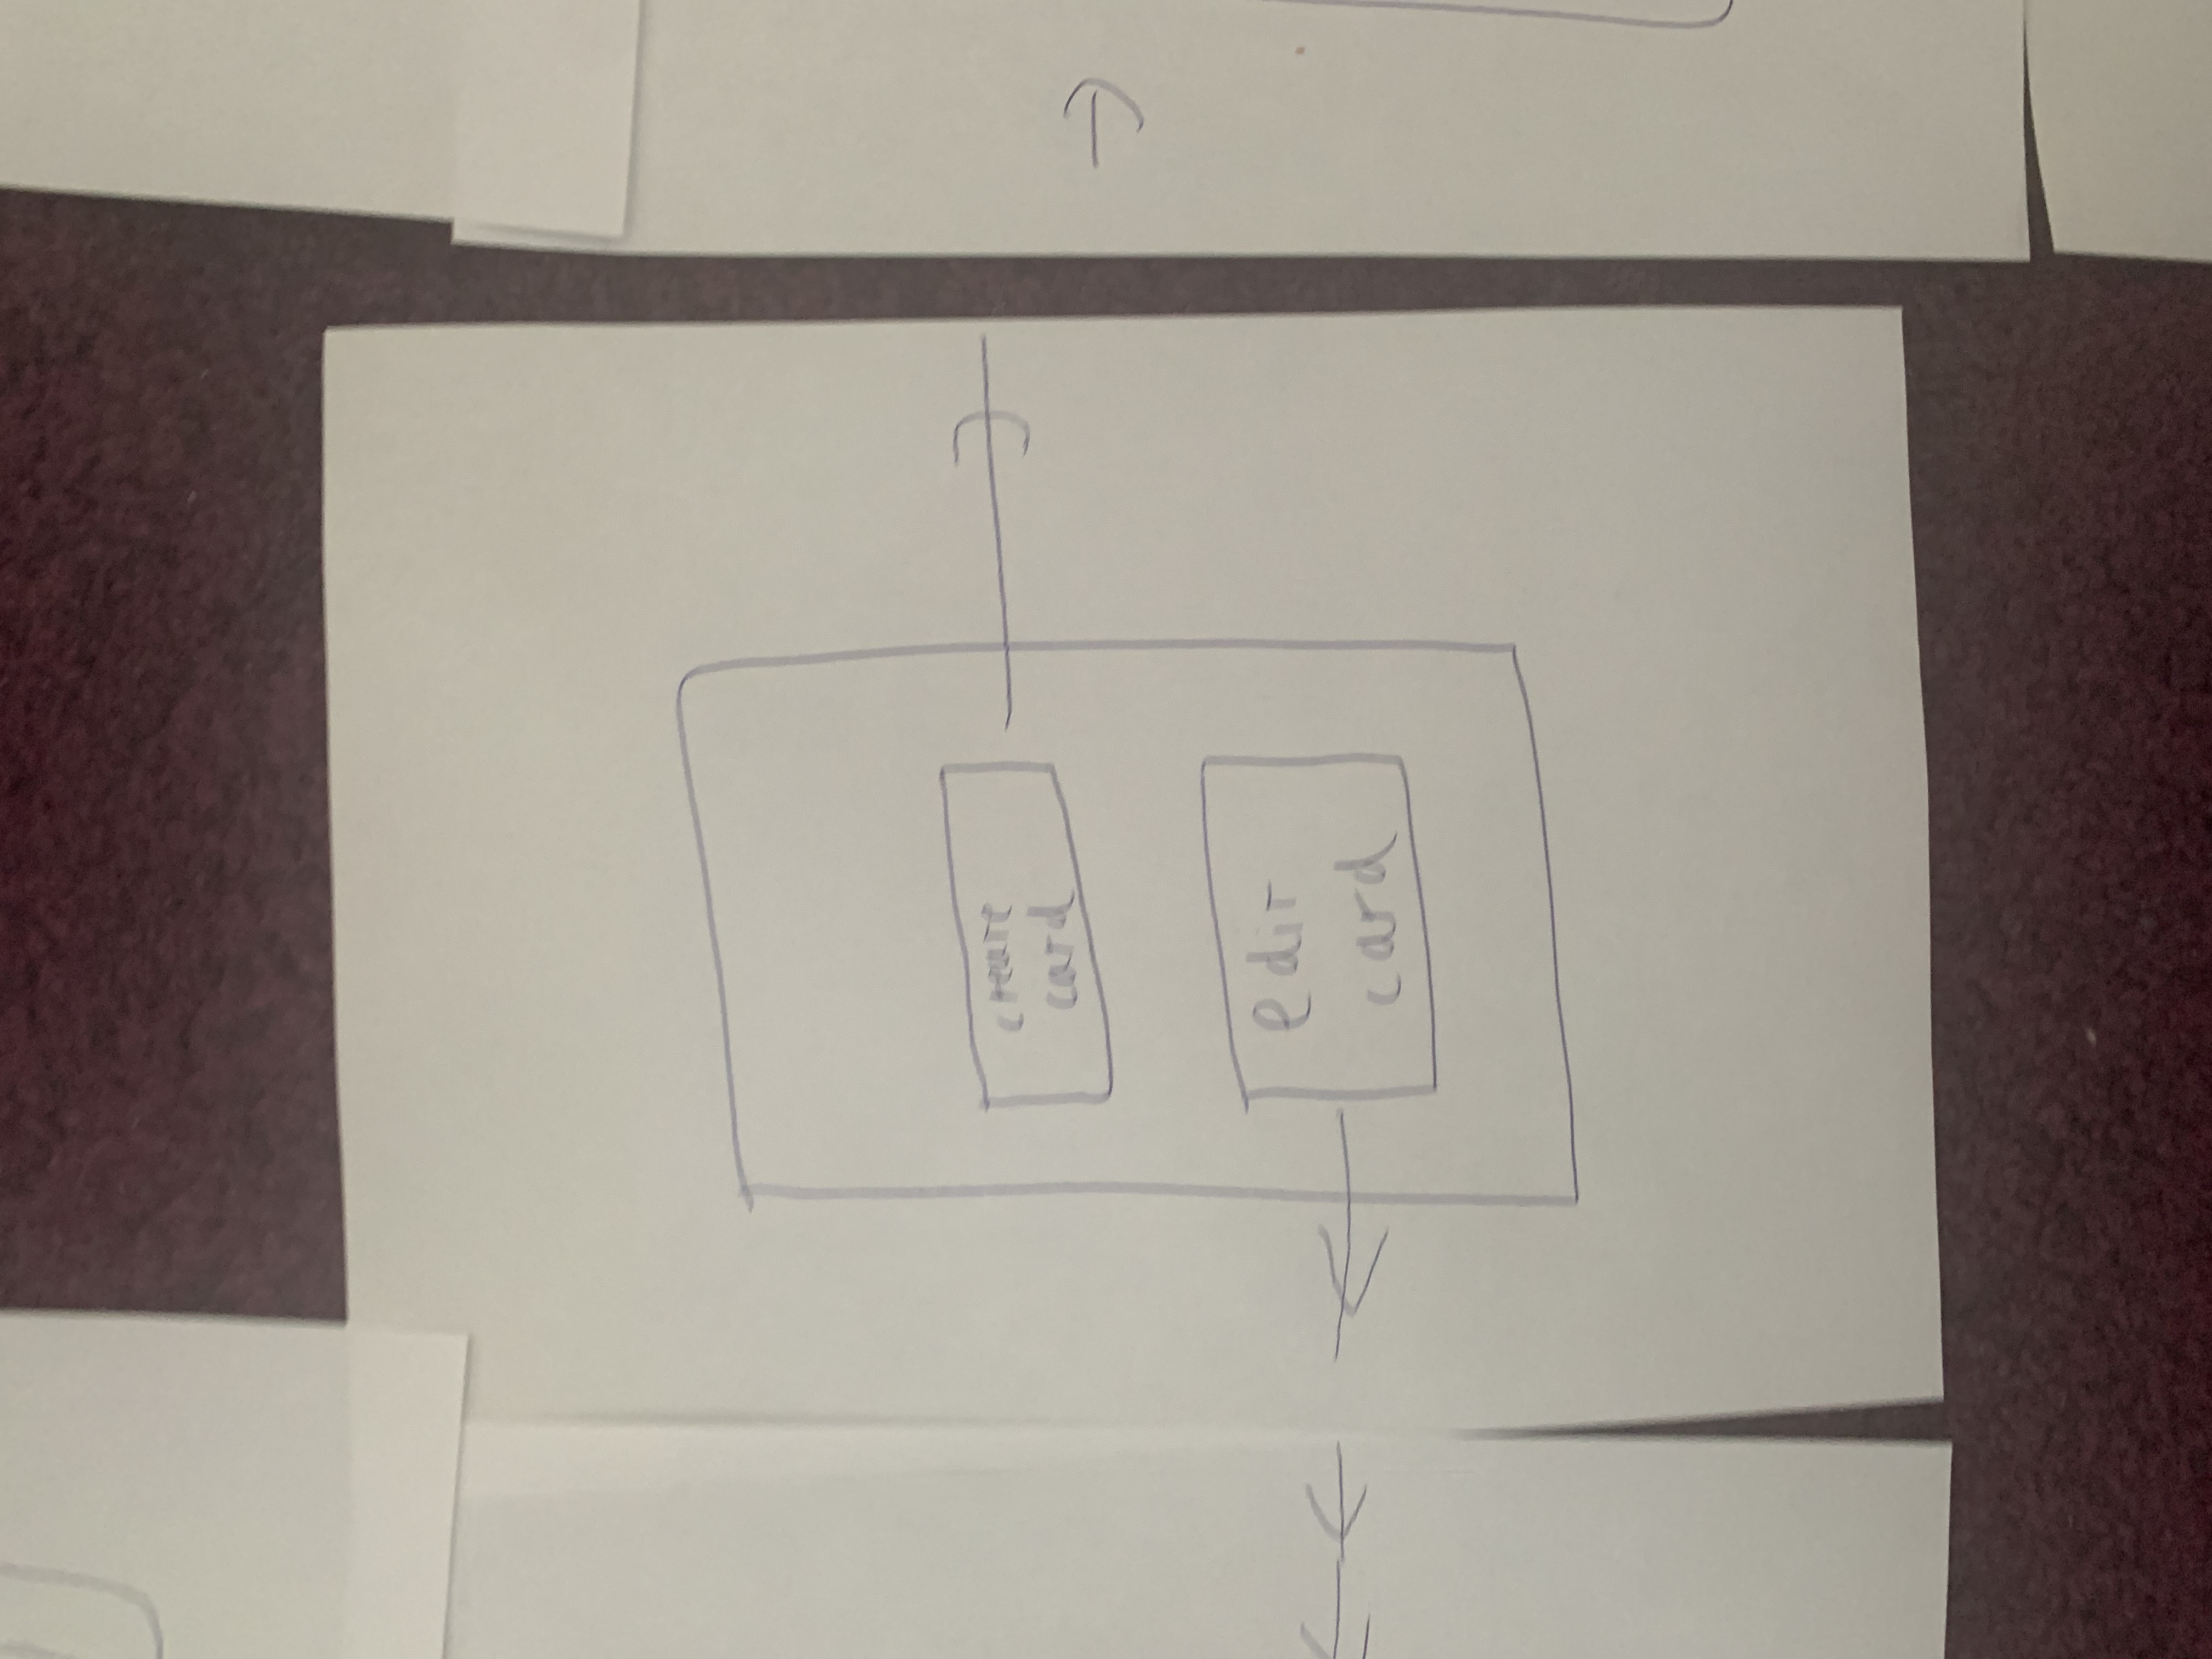 create
card
edit
card